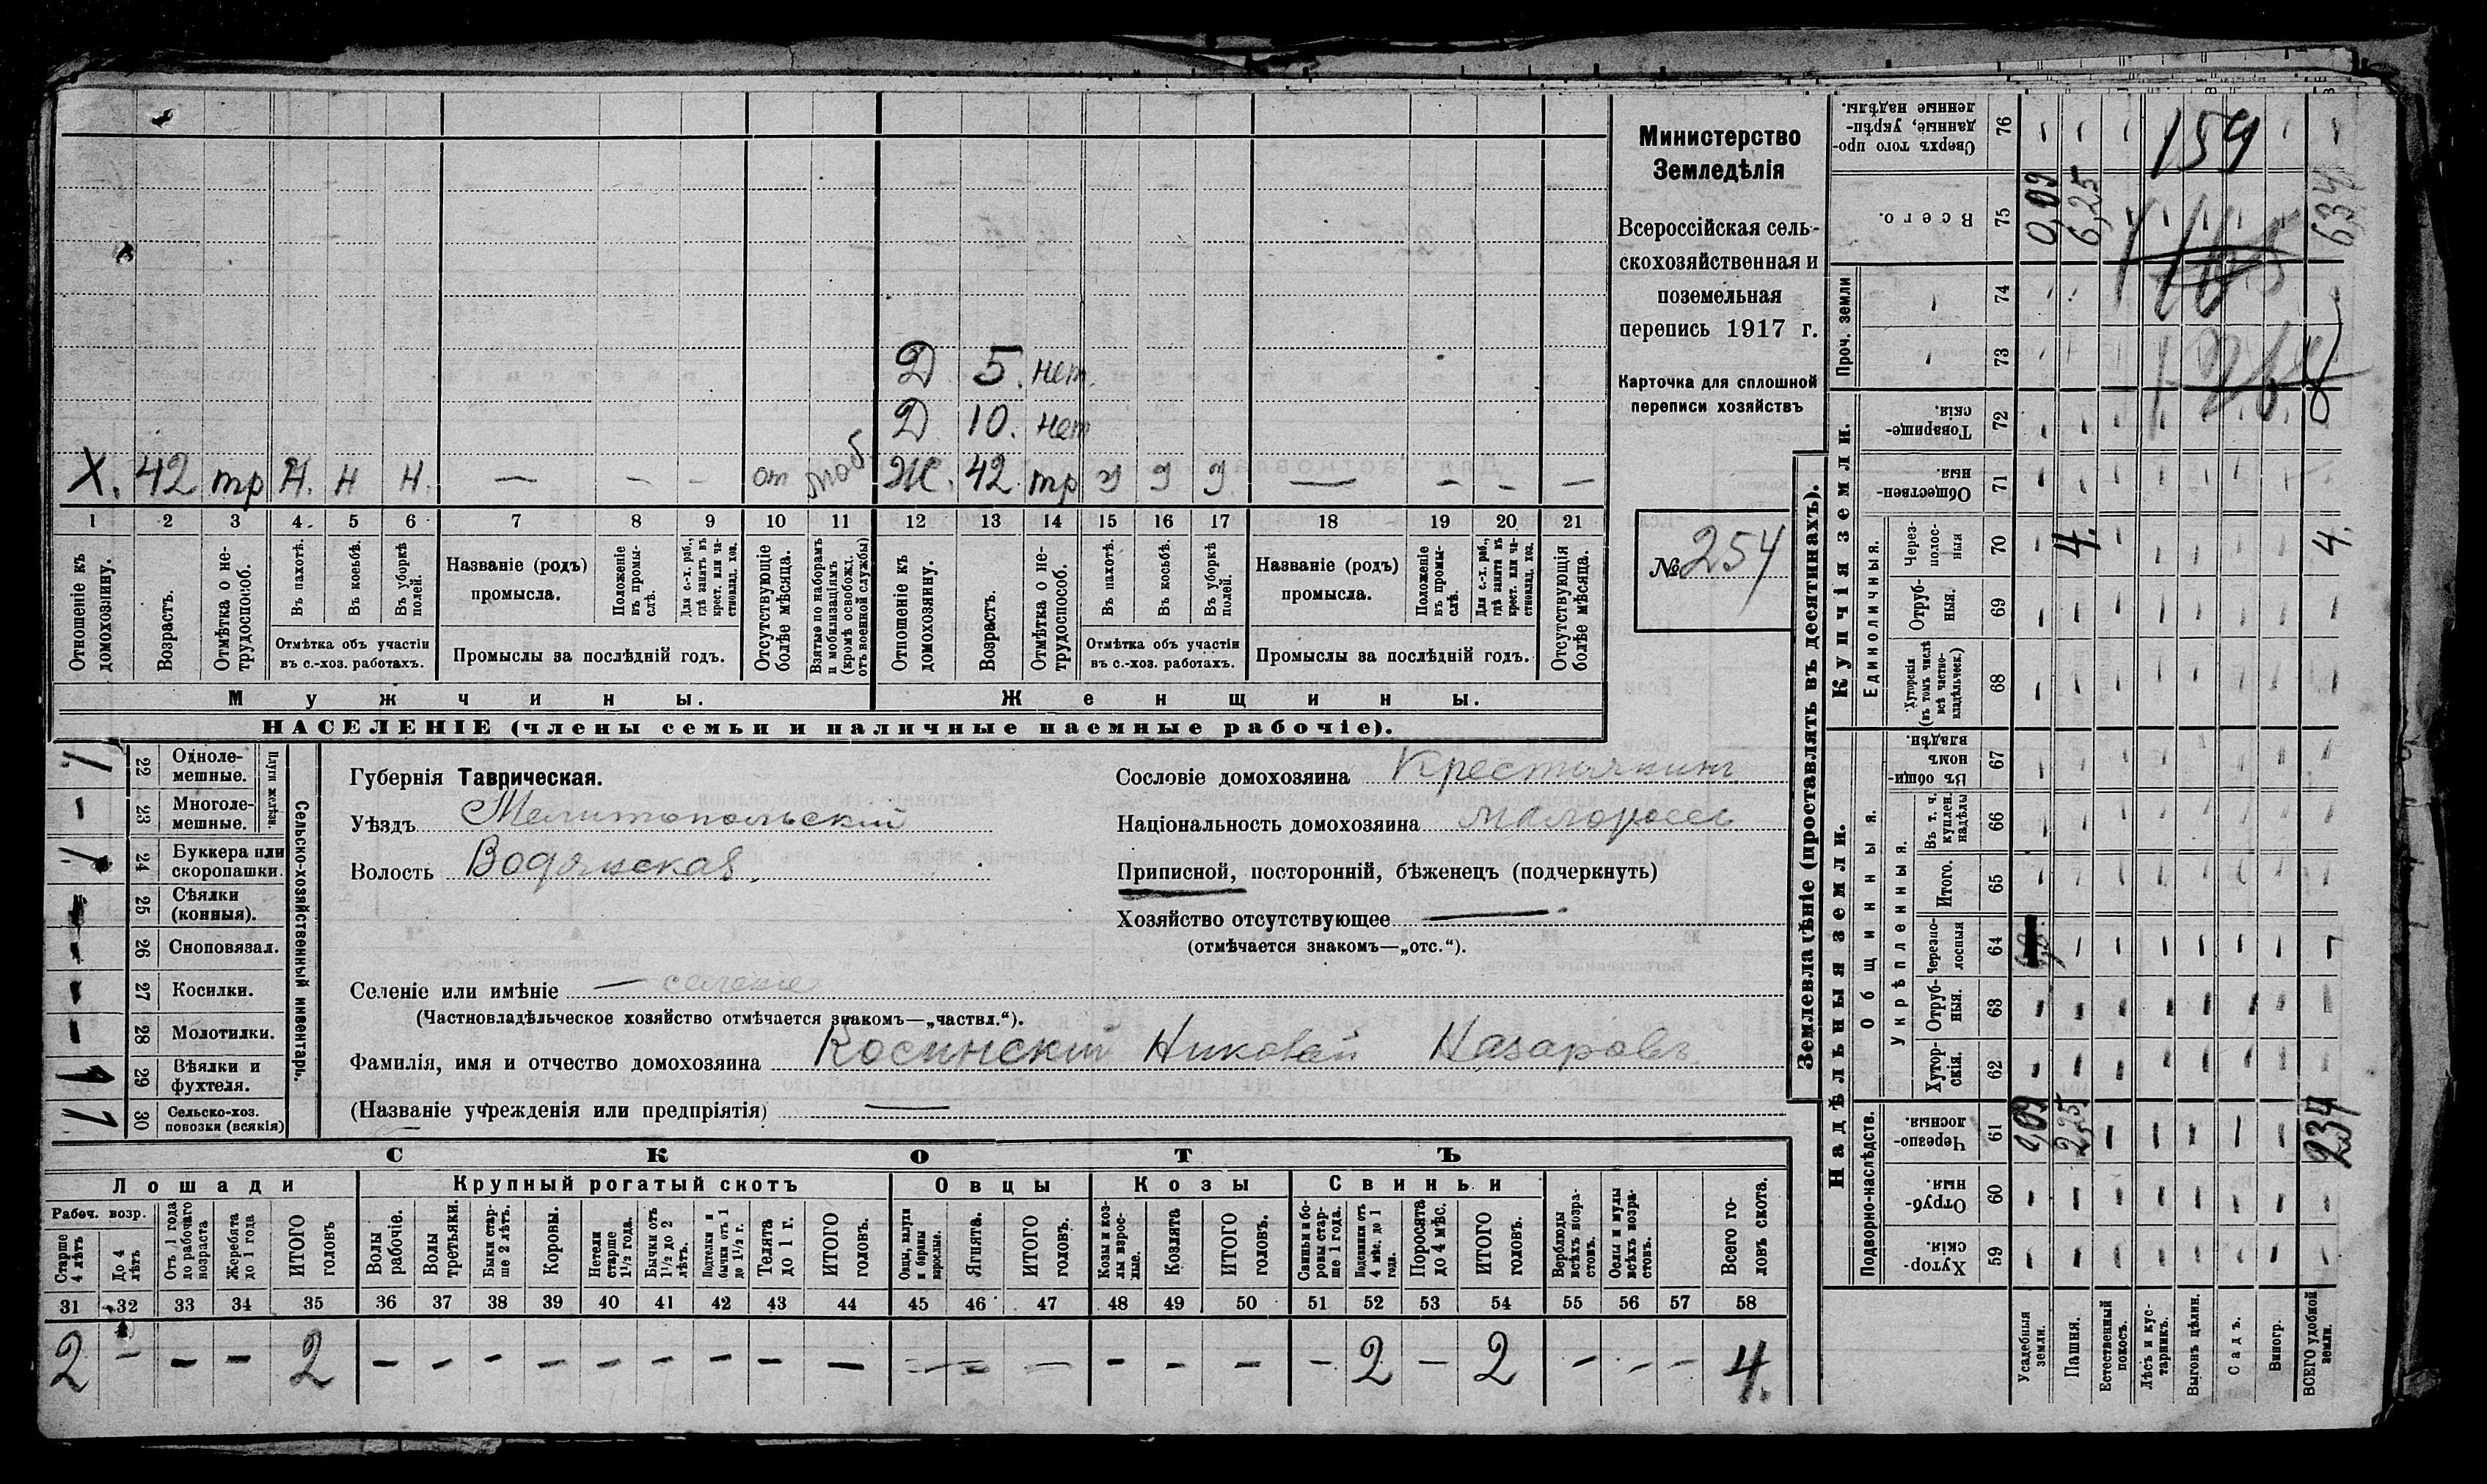 Министерство
Земледѣлія
Всероссійская сель-
скохозяйственная и
поземельная
перепись 1917 г.
Карточка для сплошной
переписи хозяйствъ
№ 254
Д 5. нет.
Д 10. нет
Х. 42 тр Н. н Н. — — — от моб Ж. 42 тр — — — —
1 2 3 4 5 6 7 8 9 10 11 12 13 14 15 16 17 18 19 20 21
Отношеніе къ домохозяину.
Возрастъ.
Отмѣтка о не-трудоспособ.
Въ пахотѣ.
Въ косьбѣ.
Въ уборкѣ полей.
Отмѣтка объ участіи
въ с.-хоз. работахъ.
Названіе (родъ)
промысла.
Положеніе въ промы-слѣ.
Для с.-х. раб., гдѣ занятъ въ крест. или ча-стновлад. хоз.
Промыслы за послѣдній годъ.
Отсутствующіе болѣе мѣсяца.
Взятые по наборамъ и мобилизаціямъ (кромѣ освобожд. отъ военной службы)
Отношеніе къ домохозяину.
Возрастъ.
Отмѣтка о не-трудоспособ.
Въ пахотѣ.
Въ косьбѣ.
Въ уборкѣ полей.
Отмѣтка объ участіи
въ с.-хоз. работахъ.
Названіе (родъ)
промысла.
Положеніе въ промы-слѣ.
Для с.-х. раб., гдѣ занята въ крест. или ча-стновлад. хоз.
Промыслы за послѣдній годъ.
Отсутствующія болѣе мѣсяца.
Мужчины.
Женщины.
НАСЕЛЕНІЕ (члены семьи и наличные наемные рабочіе).
Сельско-хозяйственный инвентарь.
Плуги желѣзн.
1 22 Однолемешные.
— 23 Многолемешные.
24 Буккера или скоропашки.
25 Сѣялки (конныя).
— 26 Сноповязал.
— 27 Косилки.
— 28 Молотилки.
29 Вѣялки и фухтеля.
1 30 Сельско-хоз. повозки (всякія)
Губернія Таврическая.
Уѣздъ Мелитопольскій
Волость Водянская.
Сословіе домохозяина Крестьянинъ
Національность домохозяина малороссъ
Приписной, посторонній, бѣженецъ (подчеркнуть)
Хозяйство отсутствующее —
(отмѣчается знакомъ—„отс.“).
Селеніе или имѣніе — селеніе
(Частновладѣльческое хозяйство отмѣчается знакомъ—„частвл.“).
Фамилія, имя и отчество домохозяина Косинскій Николай Назаровъ
(Названіе учрежденія или предпріятія) —
СКОТЪ
Лошади
Крупный рогатый скотъ
Овцы
Козы
Свиньи
Рабоч. возр.
Старше 4 лѣтъ
До 4 лѣтъ
Отъ 1 года до рабочаго возраста
Жеребята до 1 года
ИТОГО головъ
Волы рабочіе.
Волы третьяки.
Быки стар-ше 2 лѣтъ.
Коровы.
Нетели старше 1½ года.
Бычки отъ 1½ до 2 лѣтъ.
Подтелки и бычки отъ 1 до 1½ г.
Телята до 1 г.
ИТОГО головъ.
Овцы, валухи и бараны взрослые.
Ягнята.
ИТОГО головъ.
Козы и коз-лы взрос-лые.
Козлята
ИТОГО головъ.
Свиньи и бо-ровы стар-ше 1 года.
Подсвинки отъ 4 мѣс. до 1 года.
Поросята до 4 мѣс.
ИТОГО головъ.
Верблюды всѣхъ возра-стовъ.
Ослы и мулы всѣхъ возра-стовъ.
Всего го-ловъ скота.
31 32 33 34 35 36 37 38 39 40 41 42 43 44 45 46 47 48 49 50 51 52 53 54 55 56 57 58
2 — — — 2 — — — — — — — — — — — — — — — — 2 — 2 — — — 4.
Землевладѣніе (проставлять въ десятинахъ).
Купчія земли.
Надѣльныя земли.
Проч. земли
Единоличныя.
Общинныя.
Укрѣпленныя.
Подворно-наслѣдств.
76 Сверхъ того про-данные, укрѣп-ленные надѣлы.
159
75 Всего. 0,09 6,25 6,34
74
73
72 Товарище-скія.
71 Обществен-ныя.
70 Через-полос-ныя 4. 4.
69 Отруб-ныя.
68 Хуторскія (въ томъ числѣ всѣ частно-владѣльческ.)
67 Въ общи-номъ владѣн.
66 Въ т. ч. куплен. надѣлы
65 Итого.
64 Черезпо-лосныя
63 Отруб-ныя.
62 Хутор-скія.
61 Черезпо-лосныя. 0,09 2,25 2,34
60 Отруб-ныя.
59 Хутор-скія.
Усадебныя земли.
Пашня.
Естественный покосъ.
Лѣсъ и кус-тарникъ.
Выгонъ цѣлин.
Садъ.
Виногр.
ВСЕГО удобной земли.